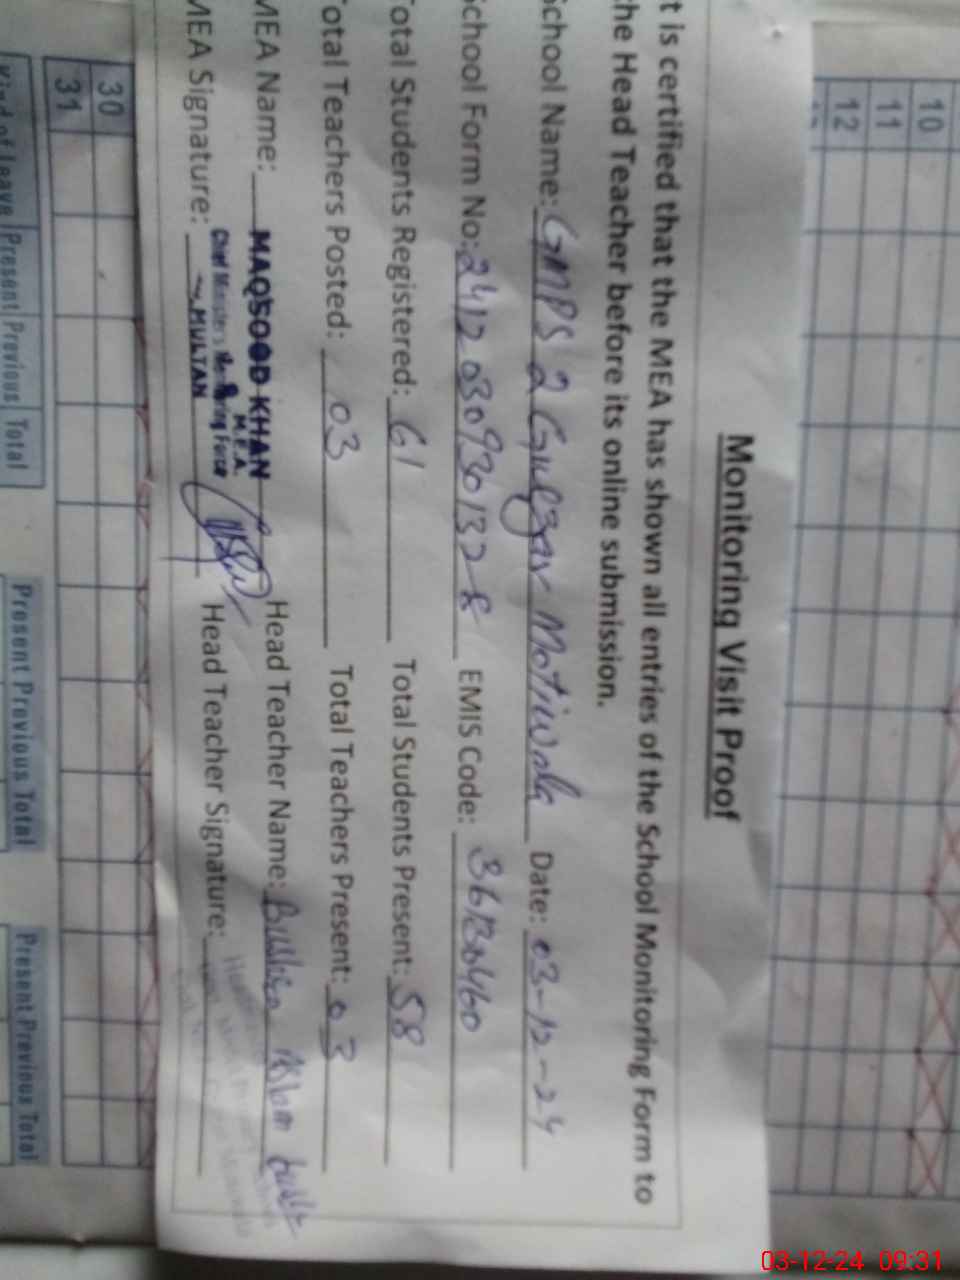 10
11
12
Monitoring Visit Proof
t is certified that the MEA has shown all entries of the School Monitoring Form to
the Head Teacher before its online submission.
School Name: GMPS 2 Gulzar Motiwala Date: 03-12-24
School Form No: EMIS Code:
Total Students Registered: 61 Total Students Present: 58
Total Teachers Posted: 03 Total Teachers Present: 03
MEA Name: MAQSOOD KHAN Head Teacher Name: Bushra Aslam
M.E.A.
Chief Minister's Monitoring Force
MEA Signature: MULTAN Head Teacher Signature:
30
31
Kind of leave Present Previous Total Present Previous Total Present Previous Total
03-12-24 09:31